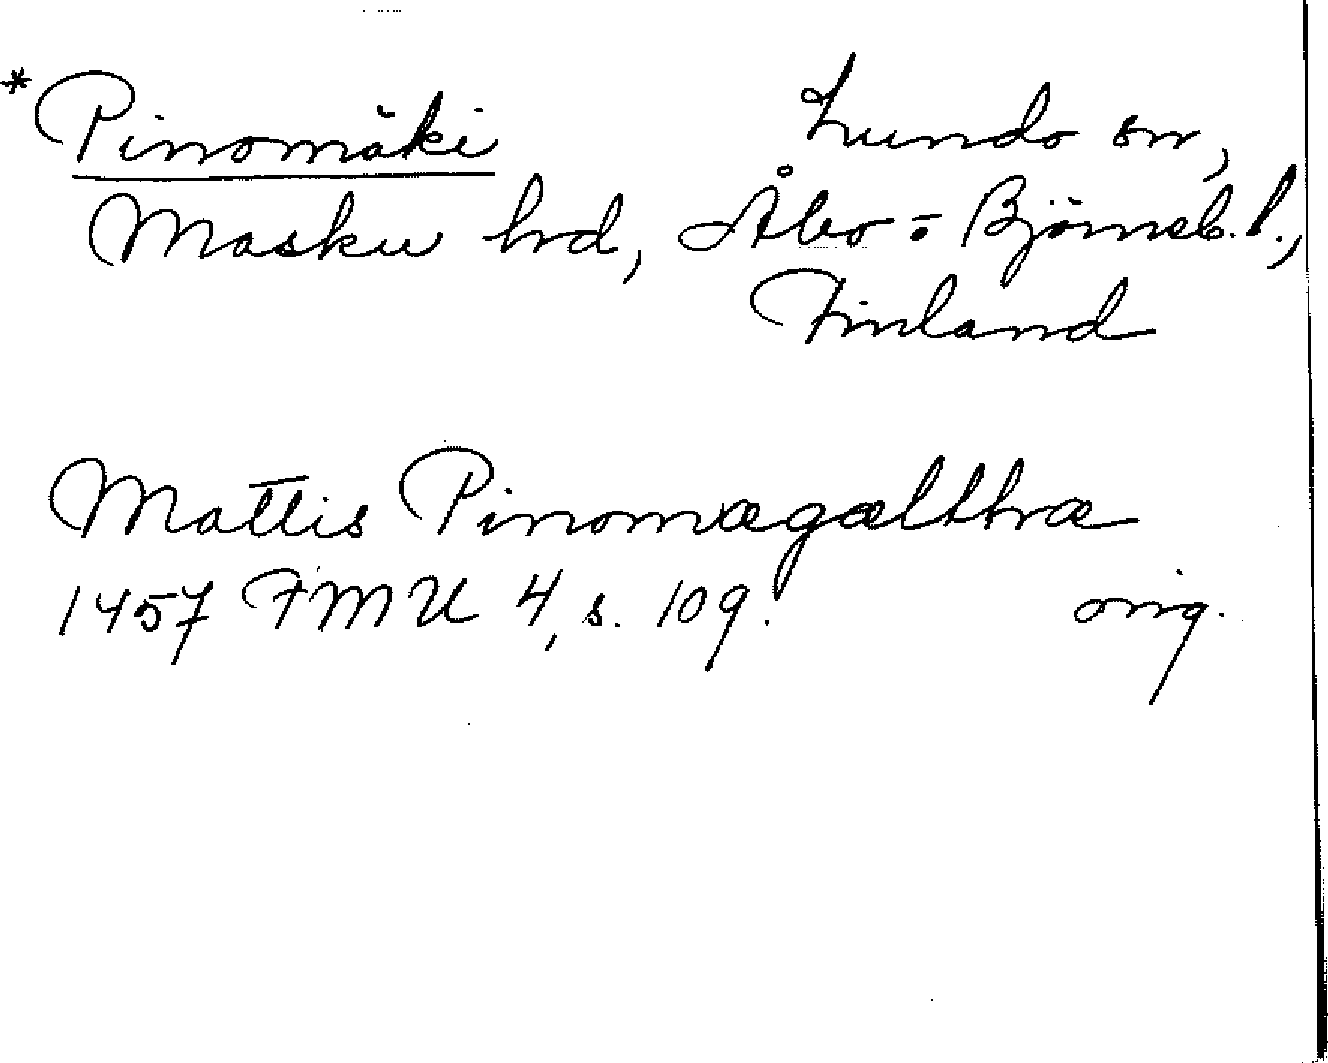 * Pinomäki Lundo sn,
Masku hd, Åbo=Björneb. l.,
Finland
Mattis Pinomægælthræ
1457 FMU 4, s. 109. orig.